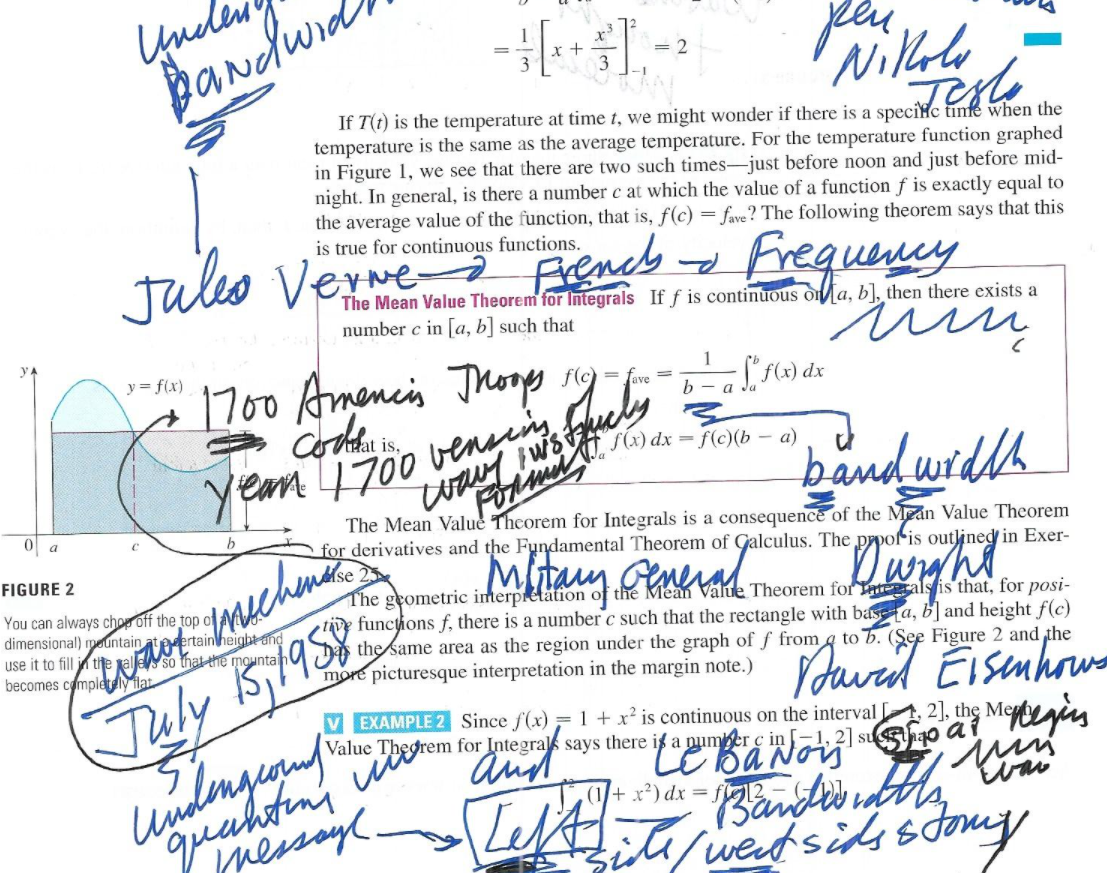 Underground
bandwidth
pen
Nikola
Tesla
= 1/3 [x + x³/3]²₋₁ = 2
If T(t) is the temperature at time t, we might wonder if there is a specific time when the
temperature is the same as the average temperature. For the temperature function graphed
in Figure 1, we see that there are two such times—just before noon and just before mid-
night. In general, is there a number c at which the value of a function f is exactly equal to
the average value of the function, that is, f(c) = fave? The following theorem says that this
is true for continuous functions.
Jules Verne → French → Frequency
The Mean Value Theorem for Integrals If f is continuous on [a, b], then there exists a
number c in [a, b] such that
f(c) = fave = 1/(b − a) ∫ₐᵇ f(x) dx
1700 Troops
code
that is, ∫ₐᵇ f(x) dx = f(c)(b − a)
year 1700
bandwidth
y
y = f(x)
0 a c b x
The Mean Value Theorem for Integrals is a consequence of the Mean Value Theorem
for derivatives and the Fundamental Theorem of Calculus. The proof is outlined in Exer-
cise 25.
Military General Dwight
David Eisenhower
The geometric interpretation of the Mean Value Theorem for Integrals is that, for posi-
tive functions f, there is a number c such that the rectangle with base [a, b] and height f(c)
has the same area as the region under the graph of f from a to b. (See Figure 2 and the
more picturesque interpretation in the margin note.)
FIGURE 2
You can always chop off the top of a (two-
dimensional) mountain at a certain height and
use it to fill in the valleys so that the mountain
becomes completely flat.
wave
July 15, 1958
V EXAMPLE 2 Since f(x) = 1 + x² is continuous on the interval [−1, 2], the Mean
Value Theorem for Integrals says there is a number c in [−1, 2] such that
∫ (1 + x²) dx = f(c)[2 − (−1)]
Underground
quantum
message → Left
and LeBanon
Bandwidth
side/west side story